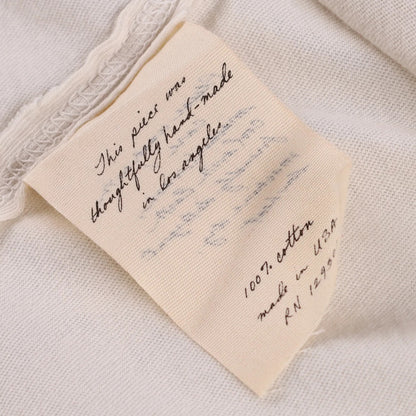 This piece was
thoughtfully hand-made
in los angeles
100% cotton
made in USA
RN